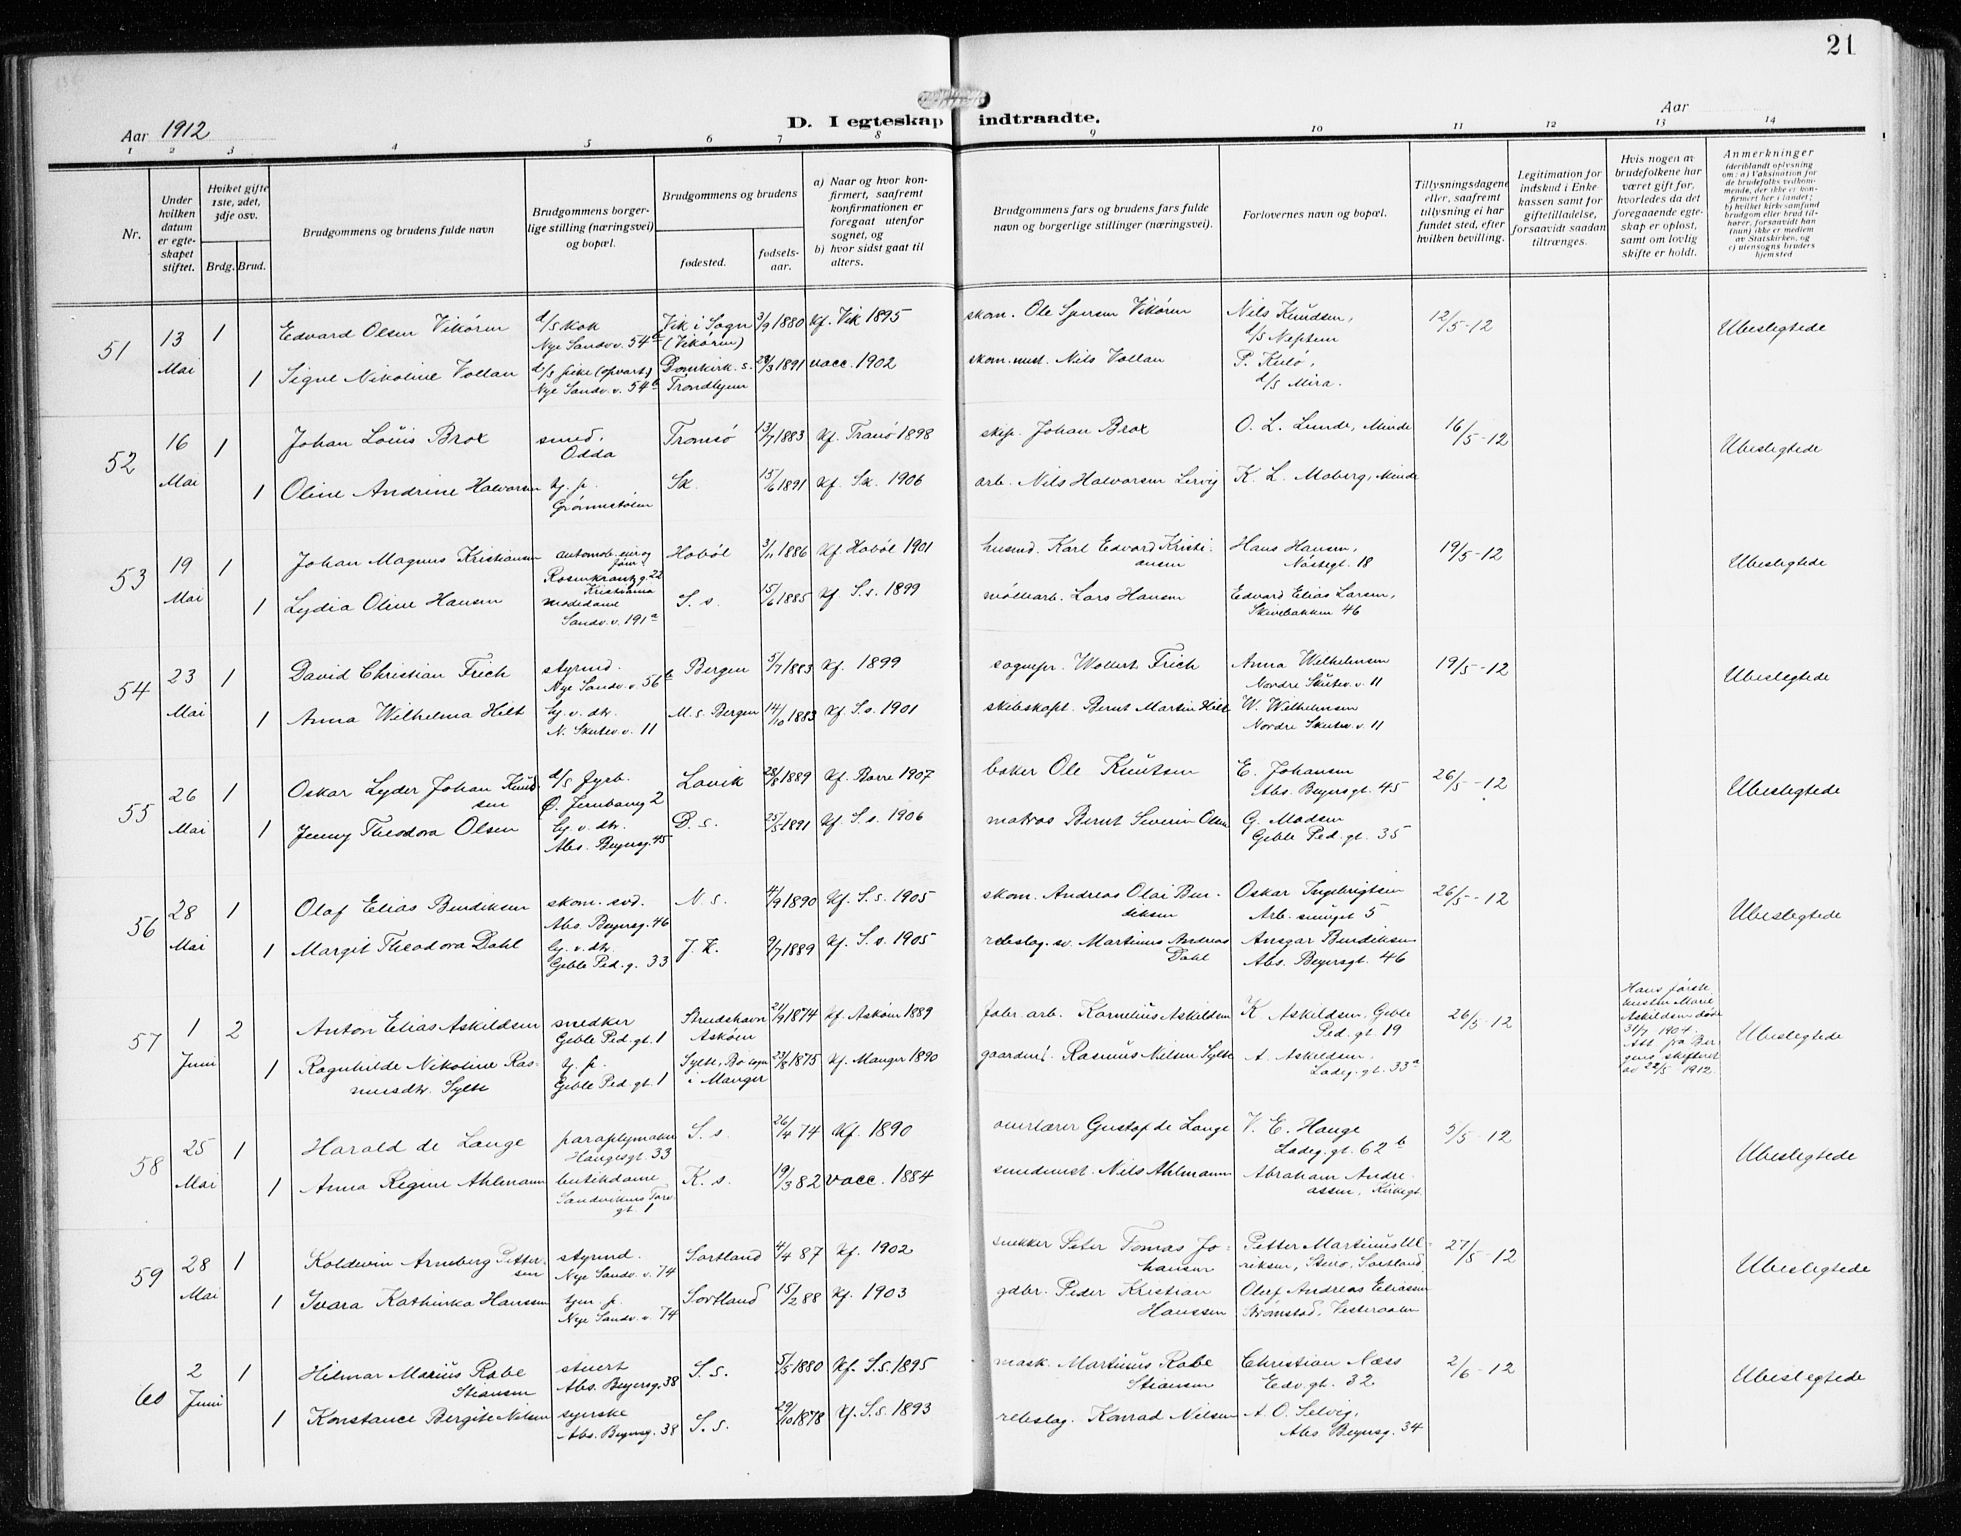 21
Aar 1912
D. I egteskap indtraadte.
Aar
1 2 3 4 5 6 7 8 9 10 11 12 13 14
Nr.
Under hvilken datum er egteskapet stiftet.
Hviket gifte 1ste, 2det, 3dje osv.
Brdg. Brud.
Brudgommens og brudens fulde navn
Brudgommens borgerlige stilling (næringsvei) og bopæl.
Brudgommens og brudens
fødested.
fødselsaar.
a) Naar og hvor konfirmert, saafremt konfirmationen er foregaat utenfor sognet, og
b) hvor sidst gaat til alters.
Brudgommens fars og brudens fars fulde navn og borgerlige stillinger (næringsvei).
Forlovernes navn og bopæl.
Tillysningsdagene eller, saafremt tillysning ei har fundet sted, efter hvilken bevilling.
Legitimation for indskud i Enkekassen samt for giftetilladelse, forsaavidt saadan tiltrænges.
Hvis nogen av brudefolkene har været gift før, hvorledes da det foregaaende egteskap er opløst, samt om lovlig skifte er holdt.
Anmerkninger
(deriblandt oplysning om: a) Vaksination for de brudefolks vedkommende, der ikke er konfirmert her i landet; b) hvilket kirkesamfund brudgom eller brud tilhører, forsaavidt han (hun) ikke er medlem av Statskirken, og c) utensogns bruders hjemsted
51 13 Mai 1 Edvard Olsen Vikören d/s kok Nye Sandv. v. 54b Vik i Sogn (Vikören) 3/9 1880 Kf. Vik 1895 skom. Ole Vikören Nils Knudsen, d/s Neptun 12/5-12 Ubeslegtede
1 Signe Nikoline Vollan d/s pike (opvart.) Nye Sandv. v. 54b Domkirk. s. Trondhjem 29/3 1891 vacc. 1902 skom. mst. Nils Vollan P. Kulö, d/s Mira.
52 16 Mai 1 Johan Louis Brox smed, Odda Tromsö 13/7 1883 Kf. Tranö 1898 skip. Johan Brox O. L. Lunde, Minde 16/5-12 Ubeslegtede
1 Oline Andrine Halvorsen tj. p. Grönnestölen Sk. 15/6 1891 Kf. Sk. 1906 arb. Nils Halvorsen Lervig K. L. Moberg, Minde
53 19 Mai 1 Johan Magnus Kristiansen Rosenkrantzg. 22 Kristiania Hoböl 3/11 1886 Kf Hoböl 1901 husmd. Karl Edvard Kristiansen Hans Hansen, Nöstegt. 18 19/5-12 Ubeslegtede
1 Lydia Oline Hansen modedame Sandv. v. 191a S. s. 15/6 1885 Kf S. s. 1899 möllearb. Lars Hansen Edvard Elias Larsen, Skivebakken 46
54 23 Mai 1 David Christian Frich styrmd. Nye Sandv. v. 56b Bergen 5/7 1883 Kf. 1899 sognepr. Wollert Frich Anna Wilhelmsen Nordre Skutev. v. 11 19/5-12 Ubeslegtede
1 Anna Wilhelma Hilt hj. v. dtr. N. Skutev. v. 11 M. s. Bergen 14/10 1883 Kf. S. s. 1901 skibskapt. Bernt Martin Hilt W. Wilhelmsen Nordre Skutev. v. 11
55 26 Mai 1 Oskar Lyder Johan Knudsen d/s fyrb. Ö. Jernbaneg 2 Lavik 28/8 1889 Kf. Borre 1907 baker Ole Knutsen E. Johansen Abs. Beyersgt. 45 26/5-12 Ubeslegtede
1 Jenny Theodora Olsen hj. v. dtr. Abs. Beyersg. 45 D. s. 25/5 1891 Kf. S. s. 1906 matros Bernt Severin Olsen G. Madsen Geble Ped. gt. 35
56 28 Mai 1 Olaf Elias Bendiksen skom. svd. Abs. Beyersg. 46 N. s. 4/9 1890 Kf. S. s. 1905 skom. Andreas Olai Bendiksen Oskar Ingebrigtsen Arb. smuget 5 26/5-12 Ubeslegtede
1 Margit Theodora Dahl hj. v. dtr. Geble Ped. g. 33 J. K. 9/7 1889 Kf. S. s. 1905 rebslag. sv. Martinus Andreas Dahl Ansgar Bendiksen Abs. Beyersgt. 46
57 1 Juni 2 Anton Elias Askildsen snedker Geble Ped. gt. 1 Strudshavn Asköen 21/9 1874 Kf. Asköen 1889 fabr. arb. Kornelius Askildsen K. Askildsen, Geble Ped. gt 19 26/5-12 Hans förste hustru Marie Askildsen döde 31/7 1904. Att. fra Bergens skifteret av 22/5 1912. Ubeslegtede
1 Ragnhilde Nikoline Rasmusdtr. Sylte tj. p. Geble Ped. gt. 1 Sylte, Bö sogn i Manger 23/8 1875 Kf. Manger 1890 gaardmd. Rasmus Nilsen Sylte A. Askildsen, Ladeg. gt. 33a
58 25 Mai 1 Harald de Lange paraplymaker Haugesgt. 33 S. s. 26/4 74 Kf. 1890 overlærer Gustaf de Lange V. E. Hauge Ladeg. gt. 62b 5/5-12 Ubeslegtede
1 Anna Regine Ahlmann butikdame Sandvikens Torvgt. 1 K. s. 19/3 82 vacc. 1884 smedmst. Nils Ahlmann Abraham Andreassen, Kirkegt.
59 28 Mai 1 Koldevin Arneberg Pettersen styrmd. Nye Sandv. v. 74 Sortland 4/4 87 Kf. 1902 snekker Peter Tomas Johansen Petter Martinus Ulriksen, Sortland 27/5-12 Ubeslegtede
1 Isara Kathinka Hanssen tjen. p. Nye Sandv. v. 74 Sortland 15/2 88 Kf. 1903 gdbr. Peder Kristian Hanssen Oluf Andreas Eliassen Strömstad, Vesteraalen
60 2 Juni 1 Hilmar Marius Rabe Steansen stuert Abs. Beyersg. 38 S. s. 5/5 1880 Kf. S. s. 1895 mask. Martinus Rabe Steansen Christian Næss Edv. gt. 32 2/6-12 Ubeslegtede
1 Konstance Bergite Nilsen syerske Abs. Beyersg. 38 S. s. 29/10 1878 Kf. S. s. 1893 rebslag. Konrad Nilsen A. O. Selvig, Abs Beyersg. 34